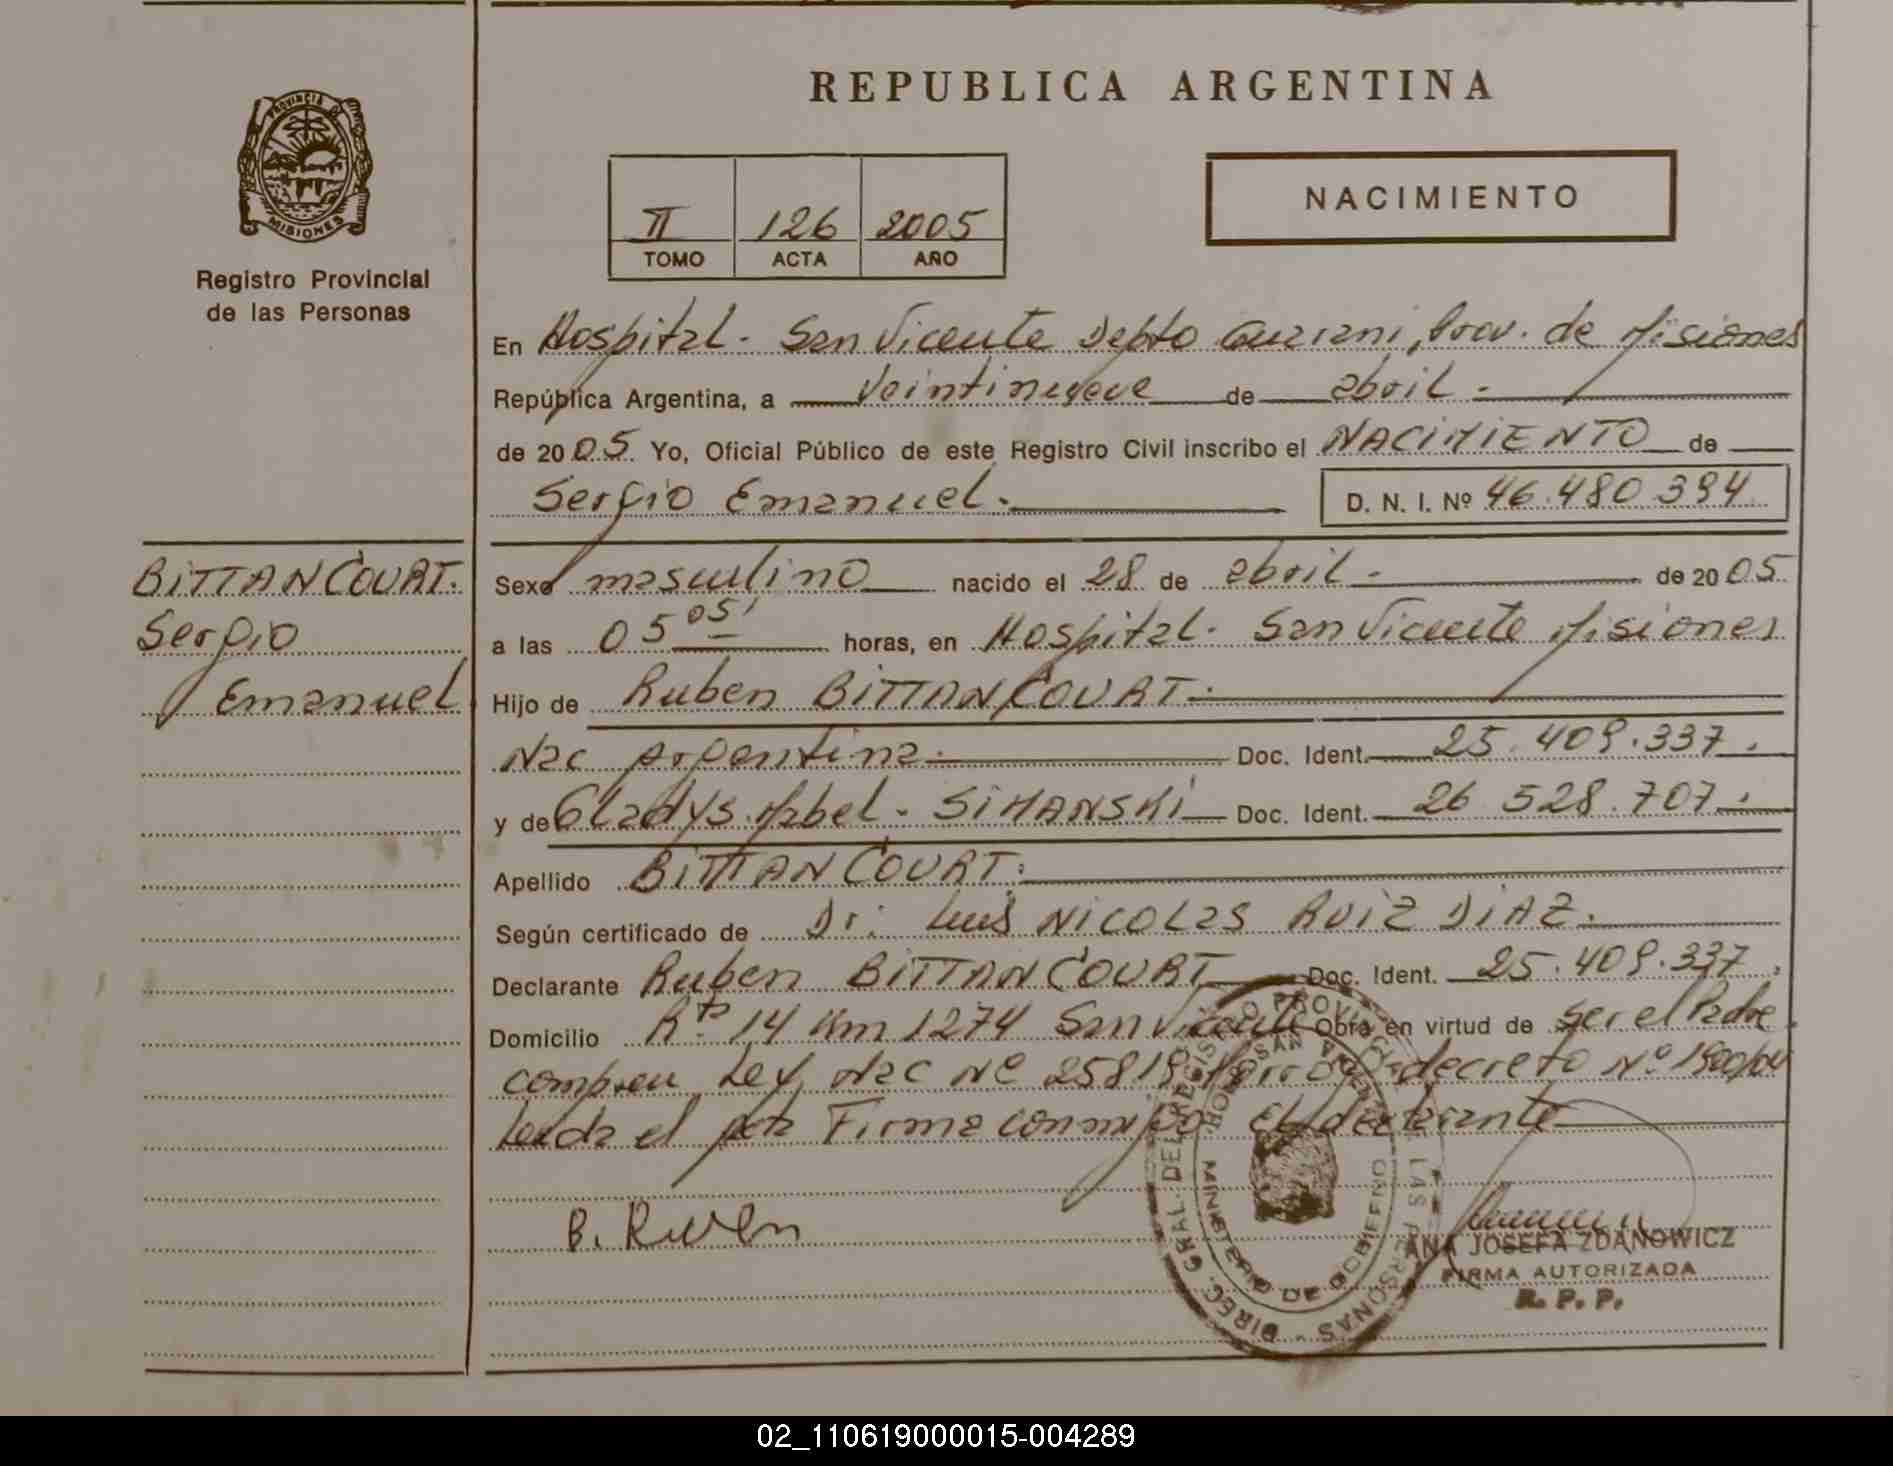 REPUBLICA ARGENTINA
PROVINCIA DE MISIONES
Registro Provincial
de las Personas
II 126 2005
TOMO ACTA AÑO
NACIMIENTO
En Hospital. San Vicente Depto Guarani, Prov. de Misiones
República Argentina, a Veintinueve de abril.
de 2005 Yo, Oficial Público de este Registro Civil inscribo el NACIMIENTO de
Sergio Emanuel. D. N. I. Nº 46.480.394
BITTANCOURT.
Sergio
Emanuel
Sexo masculino nacido el 28 de abril. de 2005
a las 05 05' horas, en Hospital. San Vicente Misiones
Hijo de Ruben BITTANCOURT.
Nac Argentina. Doc. Ident. 25.409.337.
y de Gladys Mabel. SIMANSKI Doc. Ident. 26 528.707.
Apellido BITTANCOURT.
Según certificado de Dr. Luis NICOLAS RUIZ DIAZ.
Declarante Ruben BITTANCOURT Doc. Ident. 25.409.337.
Domicilio Rta 14 Km 1274 San Vicente Obra en virtud de ser el Padre
Ley Nac Nº 25819 decreto Nº
Leida el acta Firma conmigo El declarante
B. Ruben
DIREC. GRAL. DEL REGISTRO PROVINCIAL DE LAS PERSONAS
MINISTERIO DE GOBIERNO
ANA JOSEFA ZDANOWICZ
FIRMA AUTORIZADA
R. P. P.
02_110619000015-004289